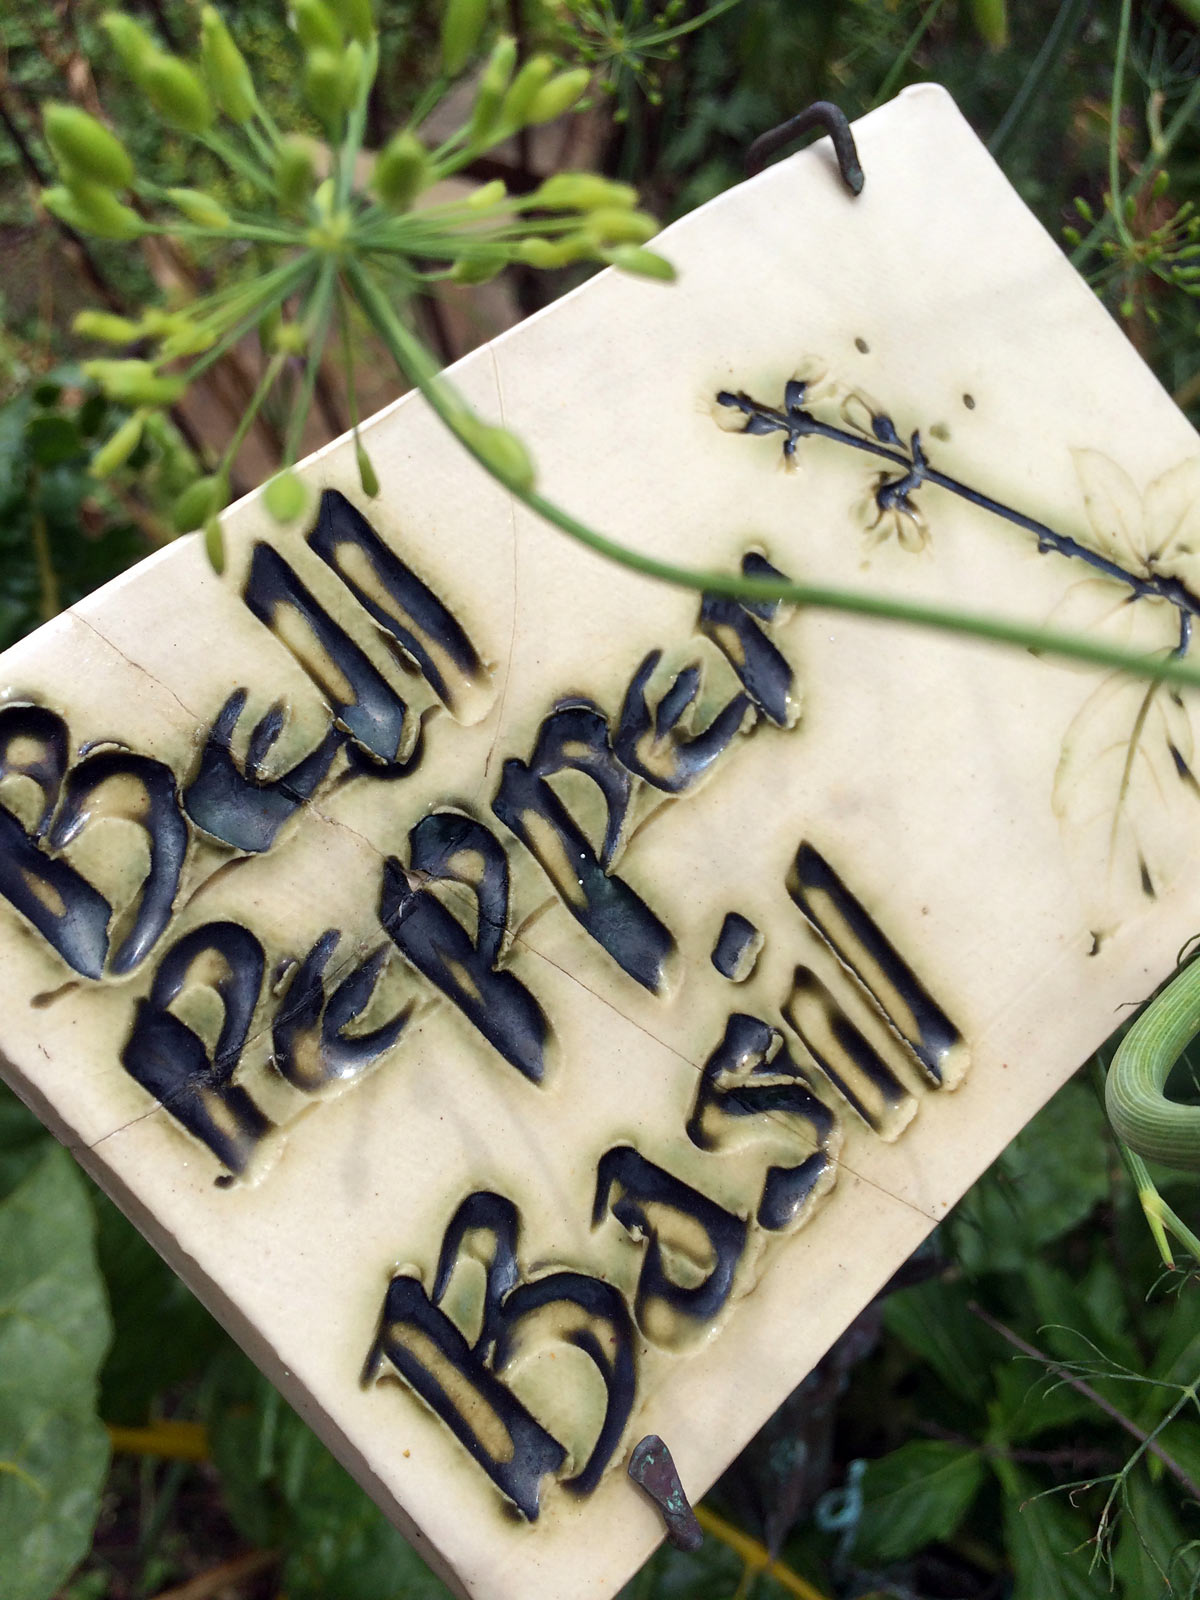 Bell
Pepper
Basil